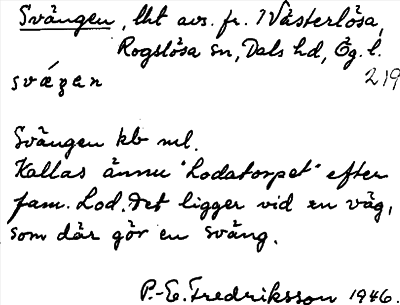 Svängen, lht avs. fr. 7 Västerlösa,
Rogslösa sn, Dals hd, Ög. l.
219
Svängen kb ml.
Kallas ännu "Lodatorpet" efter
fam. Lod. Det ligger vid en väg,
som där gör en sväng.
P.-E. Fredriksson 1946.